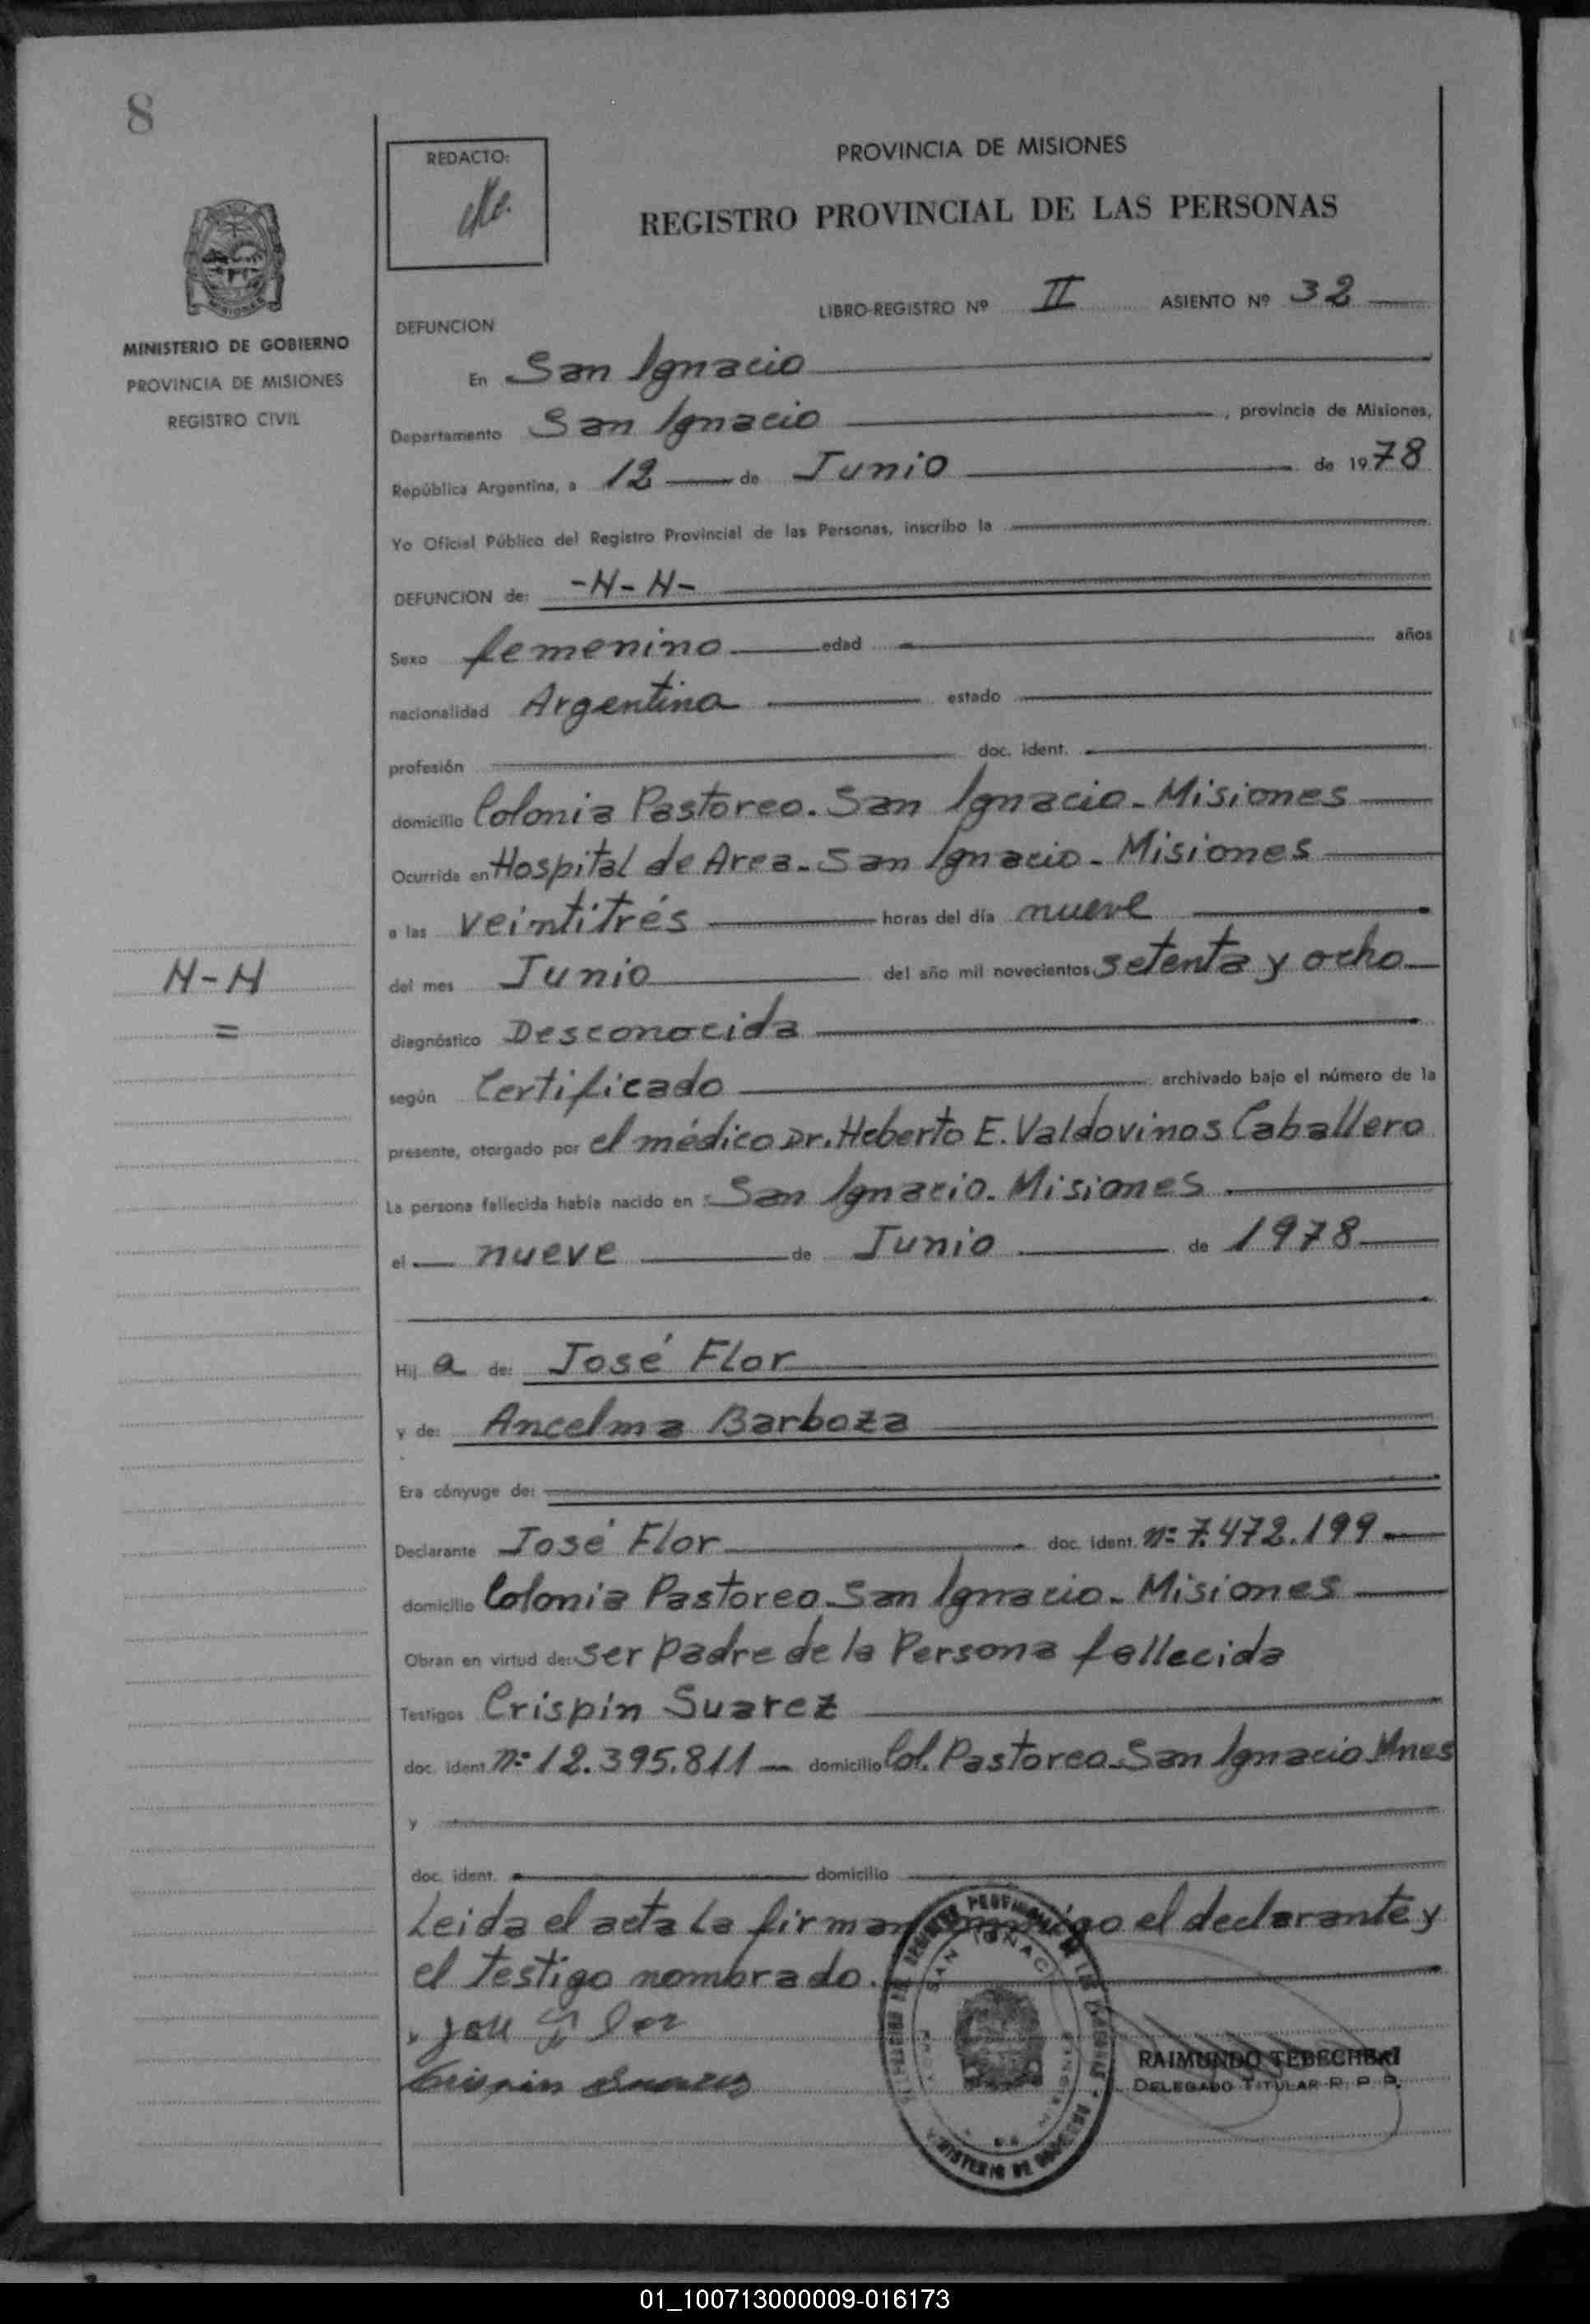 8
REDACTO:
PROVINCIA DE MISIONES
REGISTRO PROVINCIAL DE LAS PERSONAS
LIBRO-REGISTRO Nº II ASIENTO Nº 32
MINISTERIO DE GOBIERNO
PROVINCIA DE MISIONES
REGISTRO CIVIL
DEFUNCION
En San Ignacio
Departamento San Ignacio, provincia de Misiones,
República Argentina, a 12 de Junio de 1978
Yo Oficial Público del Registro Provincial de las Personas, inscribo la
DEFUNCION de: -N-N-
Sexo femenino edad años
nacionalidad Argentina estado
profesión doc. ident.
domicilio Colonia Pastoreo. San Ignacio - Misiones
Ocurrida en Hospital de Area - San Ignacio - Misiones
a las veintitrés horas del día nueve
N-N
=
del mes Junio del año mil novecientos setenta y ocho
diagnóstico Desconocida
según Certificado archivado bajo el número de la
presente, otorgado por el médico Dr. Heberto E. Valdovinos Caballero
La persona fallecida había nacido en: San Ignacio. Misiones
el nueve de Junio de 1978
Hija de: José Flor
y de: Ancelma Barboza
Era cónyuge de:
Declarante José Flor doc. ident. nº 7.472.199
domicilio Colonia Pastoreo. San Ignacio - Misiones
Obran en virtud de: ser padre de la Persona fallecida
Testigos Crispin Suarez
doc. ident. nº 12.395.811 domicilio Col. Pastoreo - San Ignacio Mnes
y
doc. ident. domicilio
Leida el acta la firman conmigo el declarante y
el testigo nombrado.
Jose Flor
Crispin Suarez
RAIMUNDO TEBECHERI
DELEGADO TITULAR R. P. P.
SAN IGNACIO
MINISTERIO DE GOBIERNO
01_100713000009-016173